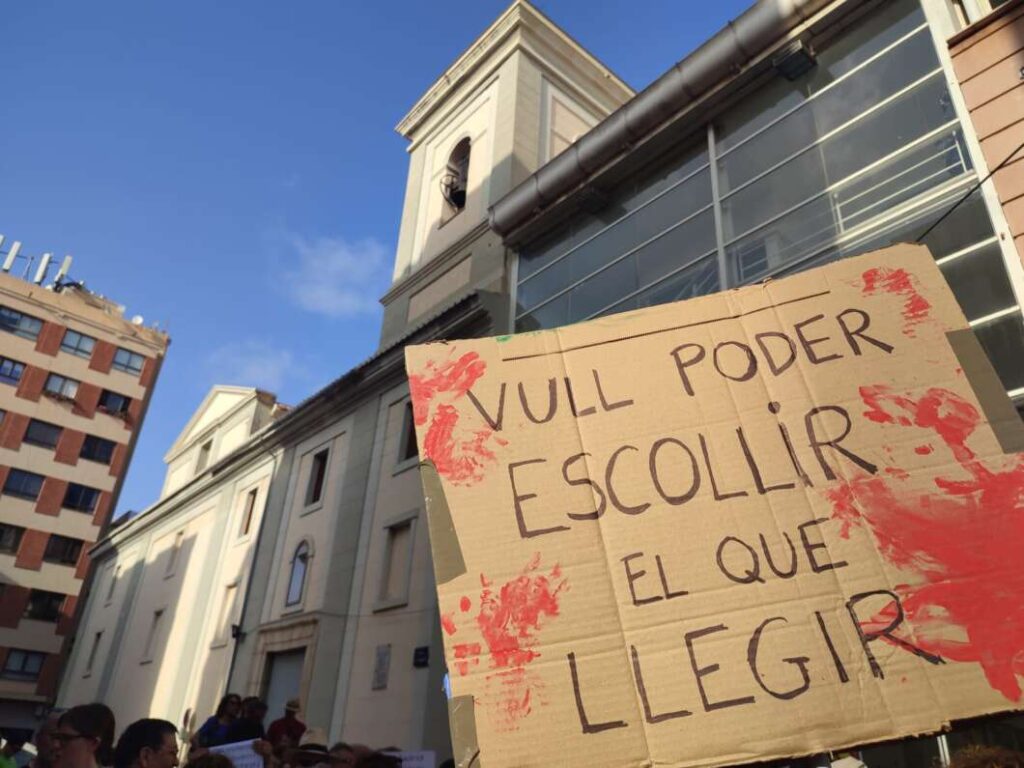 VULL PODER
ESCOLLiR
EL QUE
LLEGIR